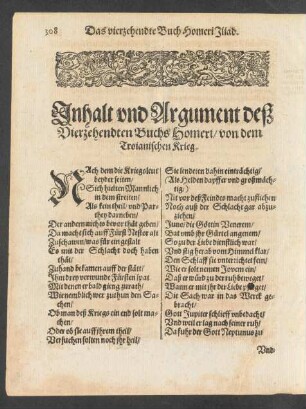 308 Das vierzehendte Buch Homeri Iliad.
Inhalt vnd Argument deß
Vierzehendten Buchs Homeri/ von dem
Troianischen Krieg.
NAch dem die Kriegsleut
beyder seiten/
Sich hielten Mannlich
in dem streiten/
Als kein theil/ vnd Par-
they daneben/
Der andern nichts bevor thät geben/
Da macht sich auff Fürst Nestor alt
Zuschauwen/ was für ein gestalt
Es mit der Schlacht doch haben
thät/
Zuhand besamlet auff der stätt/
Ihm der verwundte Fürsten
Mit denen er bald gieng zu rath/
Wie nemblich wer zuthun den Sa-
chen/
Ob man deß Kriegs ein end solt ma-
chen/
Oder ob sie auff ihrem theil/
Versuchen solten noch ihr heil/
Sie sendeten dahin einträchtig/
(Als Helden dapffer vnd großmäch-
tig)
Nit vor deß Feindes macht zufliehen
Noch auß der Schlacht gar abzu-
ziehen/
Juno/ die Göttin Venerem/
Bat vmb ihr Gürtel angenem/
So zu der Liebe dienstlich war/
Vnd stig herab vom Himmel klar/
Den Schlaff sie vnterrichtet fein/
Wie er solt nemen Jovem ein/
Daß er würd zu der ruh bewegt/
Wann er mit ihr der Liebe pflegt/
Die Sach war in das Werck ge-
bracht/
Gott Jupiter schlieff vnbedacht/
Vnd weil er lag nach seiner ruh/
Da fuhr der Gott Neptunus zu/
Vnd